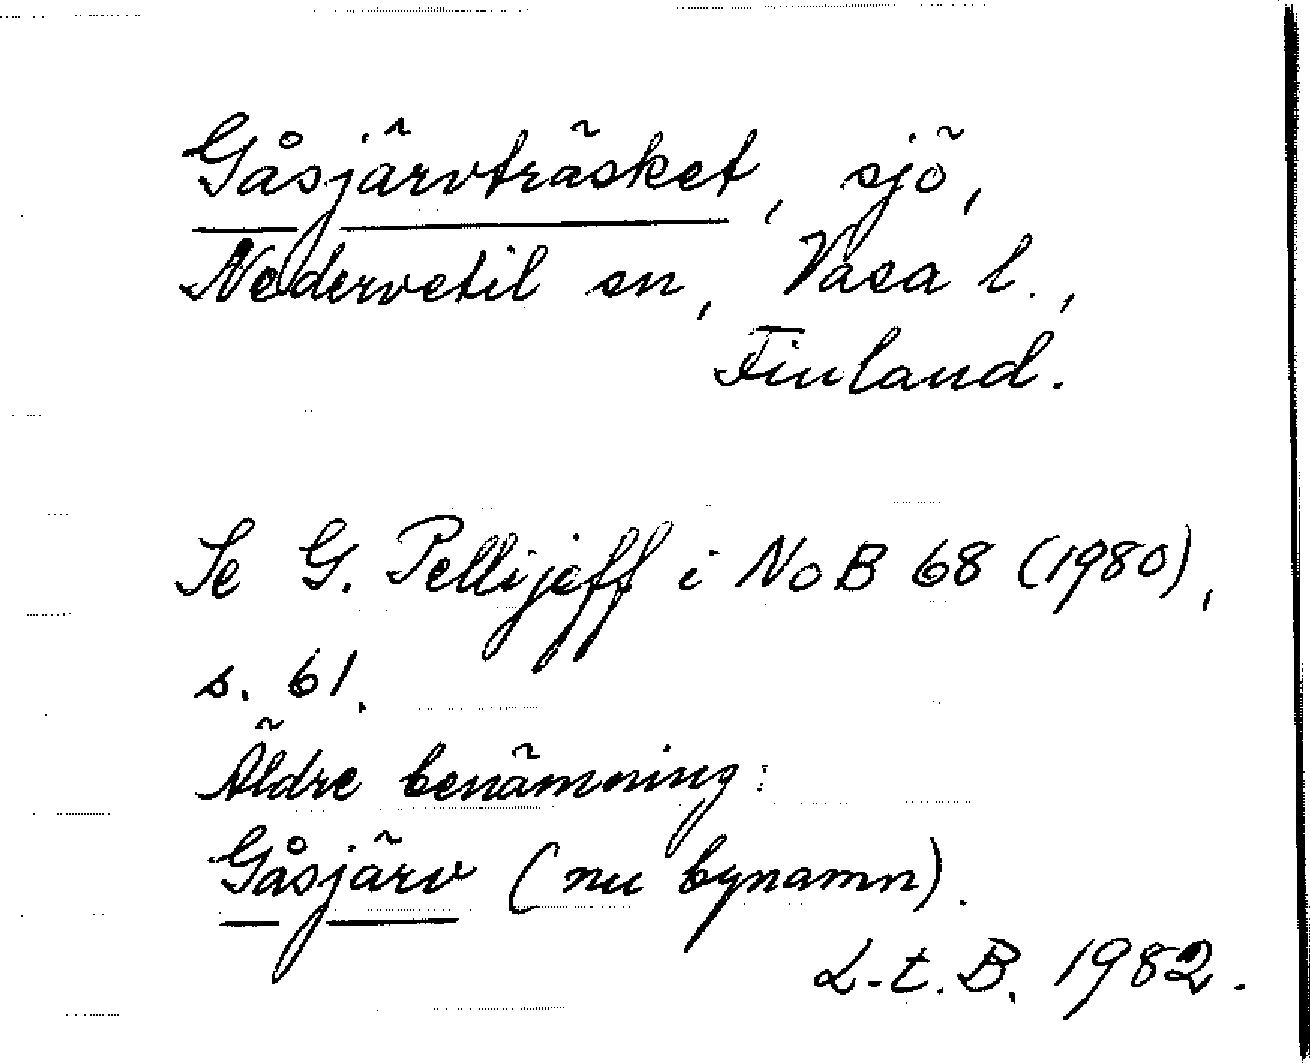 Gåsjärvträsket, sjö,
Nedervetil sn, Vasa l.,
Finland.
Se G. Pellijeff i NoB 68 (1980),
s. 61.
Äldre benämning:
Gåsjärv (nu bynamn).
L-t. B. 1982.